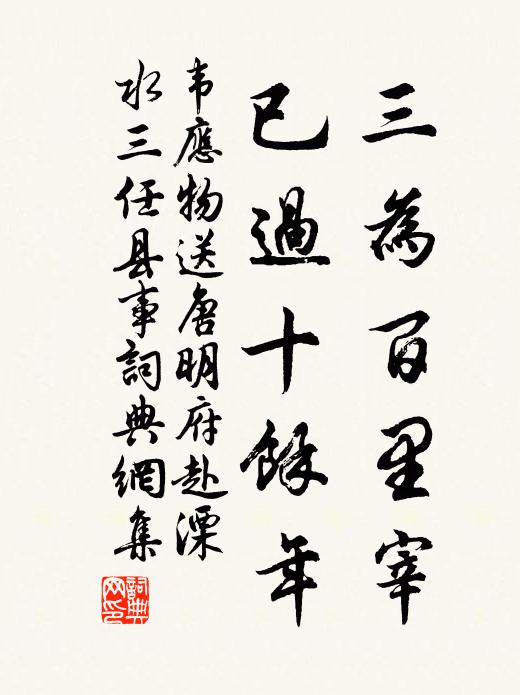 三為百里宰
已過十餘年
韦應物送唐明府赴溧
水三任县事詞典網集
詞典网印